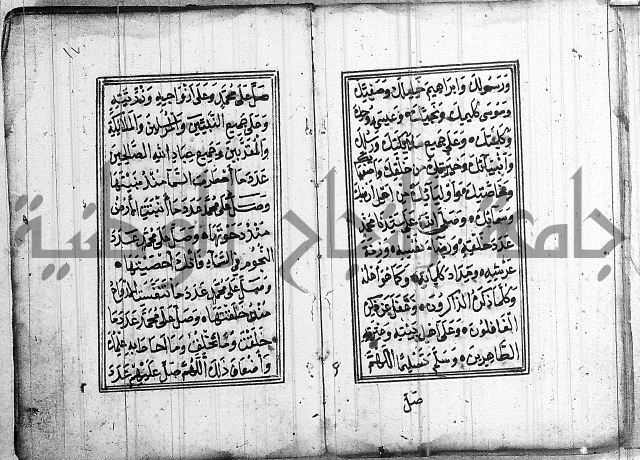 ورسولك وابراهيم خليلك وصفيك
وموسى كليمك ونجيك وعيسى روحك
وكلمتك وعلى جميع ملائكتك ورسلك
وانبيائك وخيرتك من خلقك واصفيائك
وخاصتك واوليائك من اهل ارضك
وسمائك وصلى الله على سيدنا محمد
عدد خلقه ورضاء نفسه وزنة
عرشه ومداد كلماته وكما هو اهله
وكلما ذكره الذاكرون وغفل عن ذكره
الغافلون وعلى اهل بيته وعترته
الطاهرين وسلم تسليما اللهم
صل
صل على محمد وعلى ازواجه وذريته
وعلى جميع النبيين والمرسلين والملائكة
والمقربين وجميع عباد الله الصالحين
عدد ما امطرت السما منذ بنيتها
وصل على محمد عدد ما انبتت الارض
منذ دحوتها وصل على محمد عدد
النجوم في السماء فانك احصيتها
وصل على محمد عدد ما تنفست الارواح
منذ خلقتها وصل على محمد عدد ما
خلقت وما تخلق وما احاط به علمك
واضعاف ذلك اللهم صل عليهم عدد
جامعة النجاح الوطنية